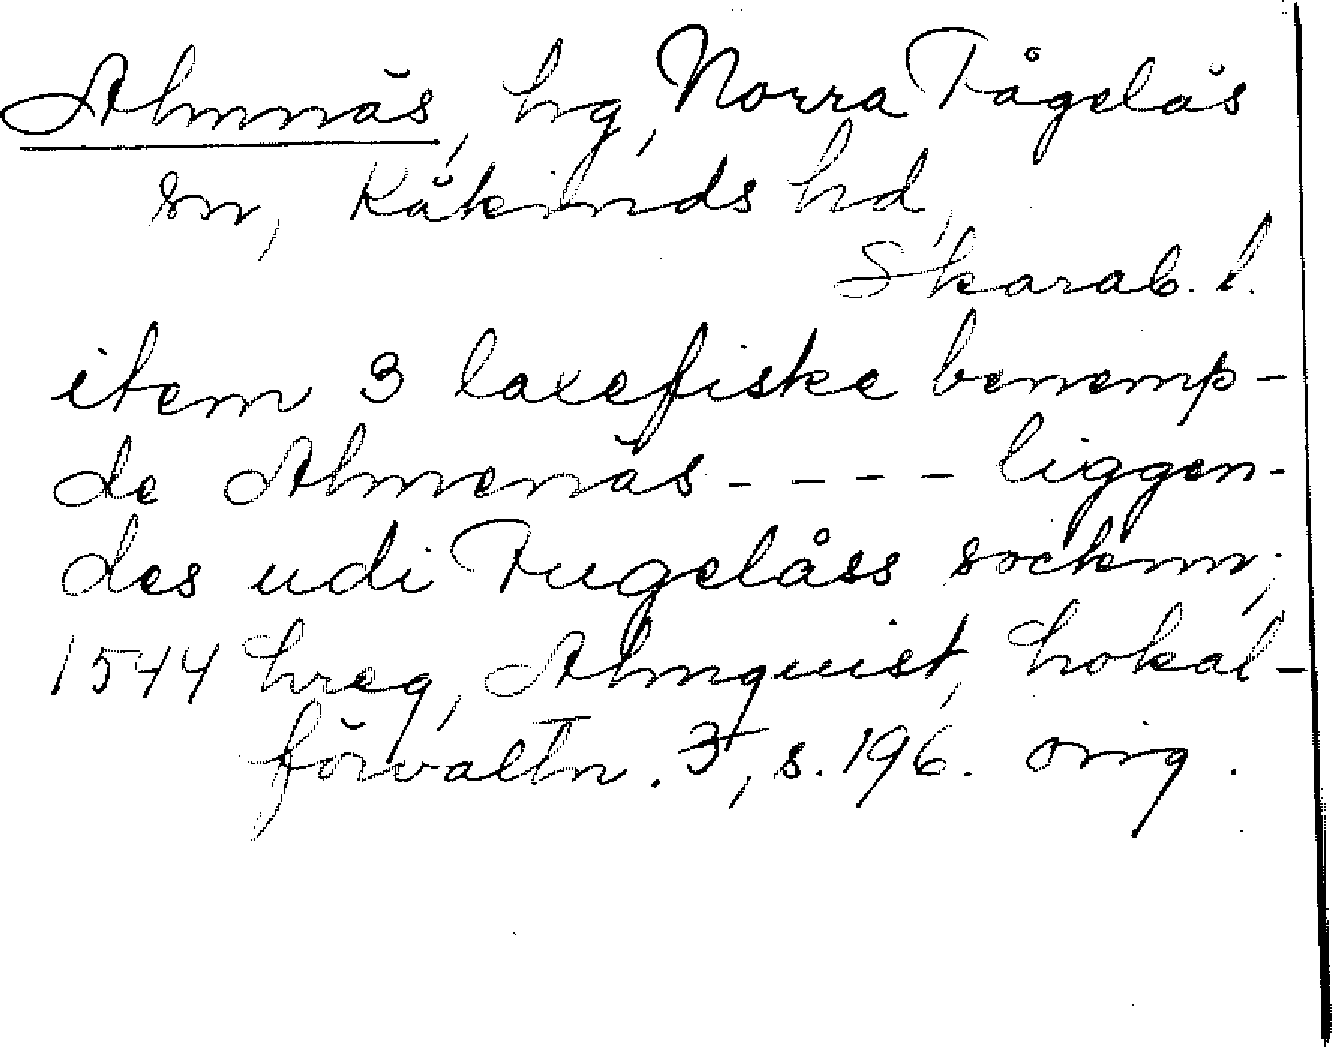 Almnäs, hg, Norra Fågelås
sn, Kåkinds hd,
Skarab. l.
item 3 laxefiske benemp-
de Almenäs - - - - liggen-
des udi Fugelåss socknn;
1544 hreg, Almquist, Lokal-
förvaltn. 3, s. 196. orig.